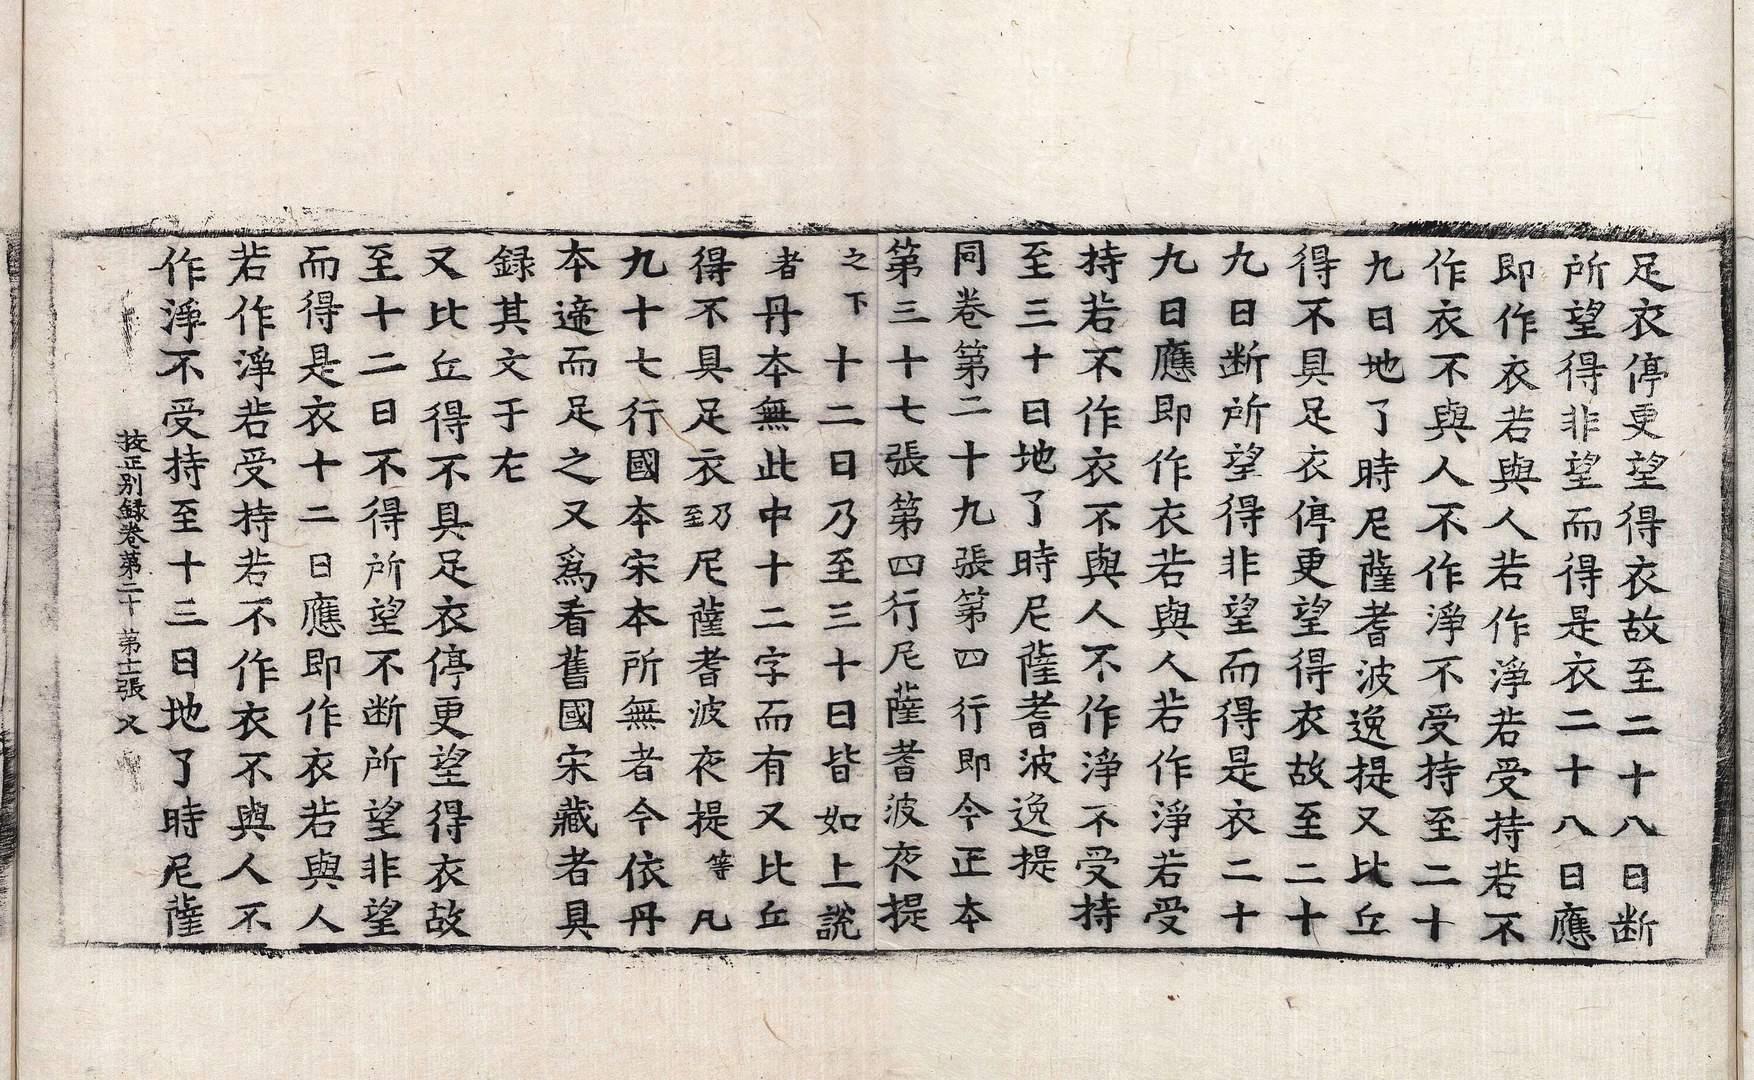 足衣停更望得衣故至二十八日断
所望得非望而得是衣二十八日應
即作衣若與人若作淨若受持若不
作衣不與人不作淨不受持至二十
九日地了時尼薩耆波逸提又比丘
得不具足衣停更望得衣故至二十
九日断所望得非望而得是衣二十
九日應即作衣若與人若作淨若受
持若不作衣不與人不作淨不受持
至三十日地了時尼薩耆波逸提
同卷第二十九張第四行即今正本
第三十七張第四行尼薩耆波夜提
之下十二日乃至三十日皆如上說
者丹本無此中十二字而有又比丘
得不具足衣乃至尼薩耆波夜提等凡
九十七行國本宋本所無者今依丹
本遆而足之又爲看舊國宋藏者具
録其文于左
又比丘得不具足衣停更望得衣故
至十二日不得所望不断所望非望
而得是衣十二日應即作衣若與人
若作淨若受持若不作衣不與人不
作淨不受持至十三日地了時尼薩
挍正别録卷第二十 第十二張 㐅